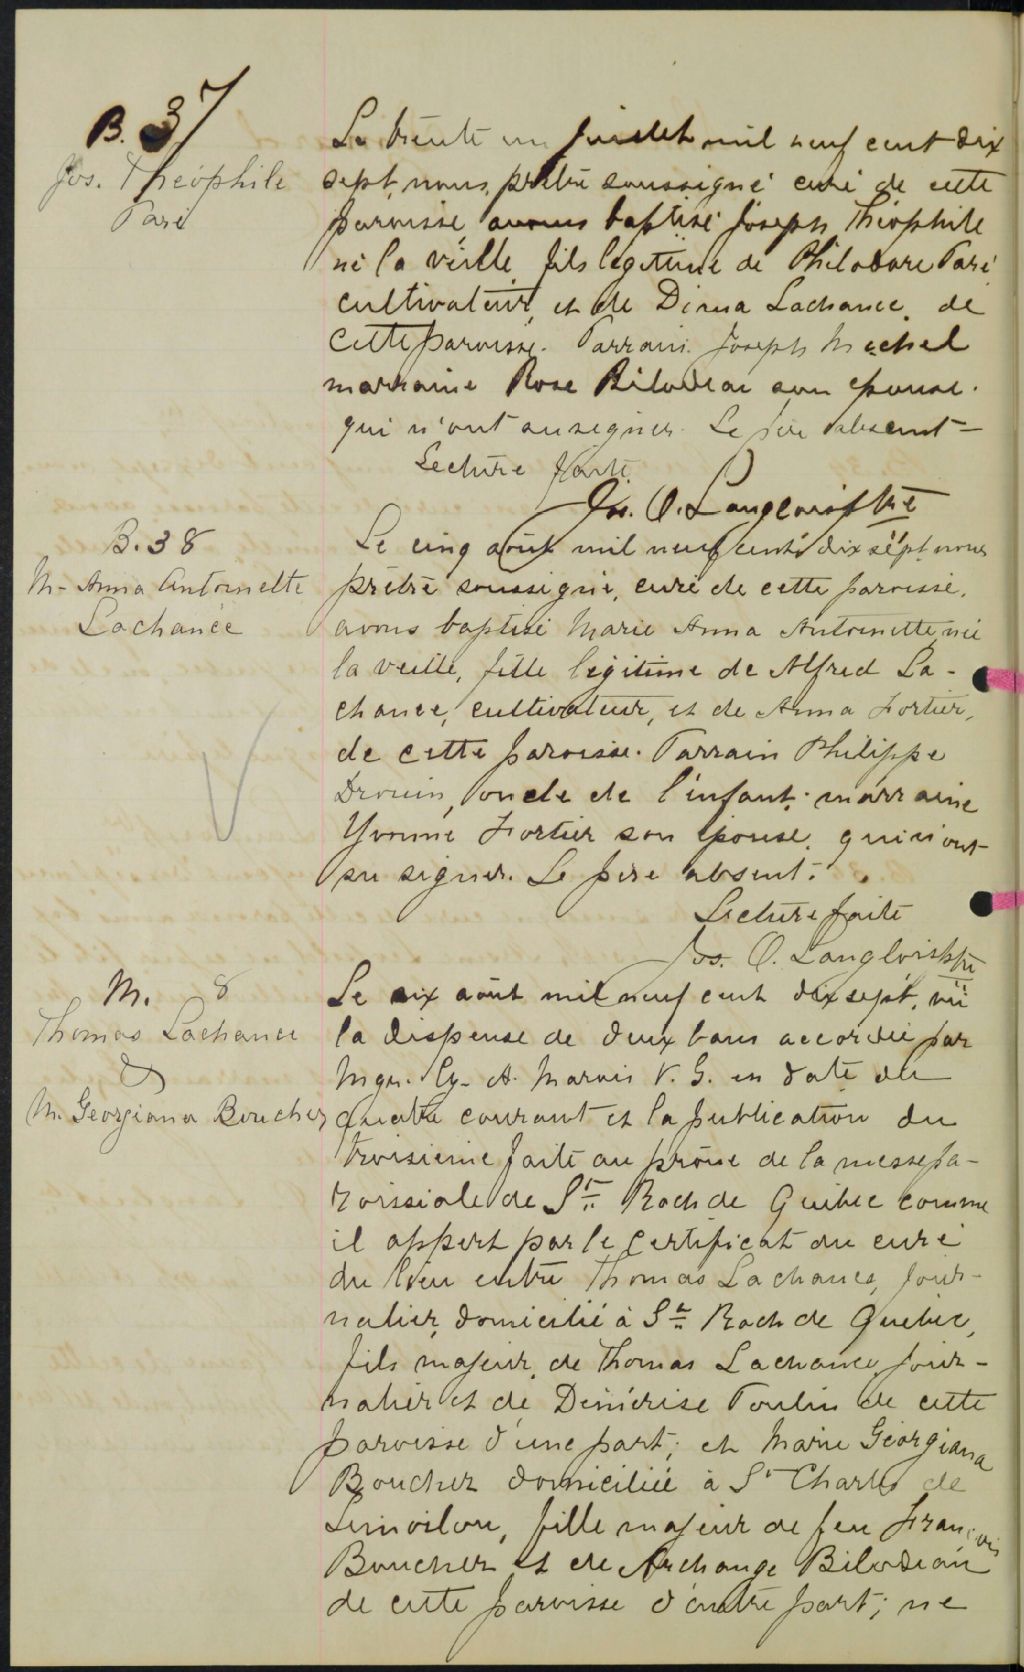 B. 37
Jos. Théophile
Paré
Le trente un juillet mil neuf cent dix
sept, nous, prêtre soussigné curé de cette
paroisse avons baptisé Joseph Théophile
né la veille, fils légitime de Philodore Paré
cultivateur, et de Dima Lachance, de
cette paroisse. Parrain Joseph Michel
marraine Rose Bilodeau son épouse.
qui n'ont su signer. Le père absent -
Lecture faite
Jos. O. Langlois ptre
B. 38
M- Anna Antoinette
Lachance
Le cinq août mil neuf cent dix sept nous
prêtre soussigné, curé de cette paroisse,
avons baptisé Marie Anna Antoinette, née
la veille, fille légitime de Alfred La-
chance, cultivateur, et de Anna Fortier,
de cette paroisse. Parrain Philippe
Drouin, oncle de l'enfant; marraine
Yvonne Fortier son épouse, qui n'ont
su signer. Le père absent.
Lecture faite
Jos. O. Langlois ptre
M. 8
Thomas Lachance
&
M. Georgiana Boucher
Le six août mil neuf cent dix sept, vu
la dispense de deux bans accordée par
Mgr. Cy. A. Marois V. G. en date du
quatre courant et la publication du
troisième faite au prône de la messe pa-
roissiale de St Roch de Québec comme
il appert par le certificat du curé
du lieu entre Thomas Lachance, jour-
nalier, domicilié à St Roch de Québec,
fils majeur de Thomas Lachance, jour-
nalier et de Démérise Poulin de cette
paroisse d'une part; et Marie Georgiana
Boucher domiciliée à St Charles de
Limoilou, fille majeur de feu François
Boucher et de Archange Bilodeau
de cette paroisse d'autre part; ne